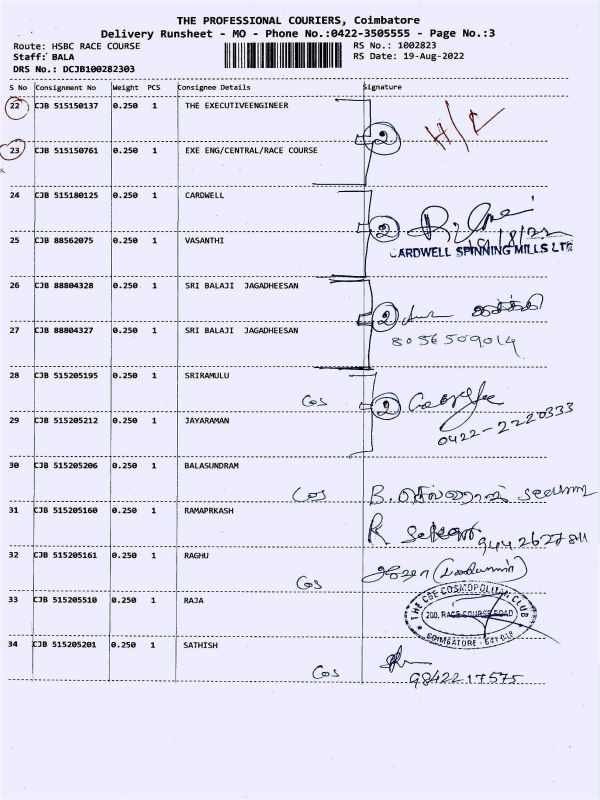 THE PROFESSIONAL COURIERS, Coimbatore
Delivery Runsheet - MO - Phone No.:0422-3505555 - Page No.:3
Route: HSBC RACE COURSE RS No.: 1002823
Staff: BALA RS Date: 19-Aug-2022
DRS No.: DCJB100282303
S No Consignment No Weight PCS Consignee Details Signature
22 CJB 515150137 0.250 1 THE EXECUTIVEENGINEER
H/C
2
23 CJB 515150761 0.250 1 EXE ENG/CENTRAL/RACE COURSE
24 CJB 515180125 0.250 1 CARDWELL
2
25 CJB 88562075 0.250 1 VASANTHI
CARDWELL SPINNING MILLS LTD
26 CJB 88804328 0.250 1 SRI BALAJI JAGADHEESAN
2
27 CJB 88804327 0.250 1 SRI BALAJI JAGADHEESAN
8056509014
28 CJB 515205195 0.250 1 SRIRAMULU
Cos 2
29 CJB 515205212 0.250 1 JAYARAMAN
0422-2220333
30 CJB 515205206 0.250 1 BALASUNDRAM
Cos B.
31 CJB 515205160 0.250 1 RAMAPRKASH
R
32 CJB 515205161 0.250 1 RAGHU
Cos
33 CJB 515205510 0.250 1 RAJA
THE CBE COSMOPOLITAN CLUB
200, RACE COURSE ROAD
COIMBATORE - 641 018
34 CJB 515205201 0.250 1 SATHISH
Cos 9842217575